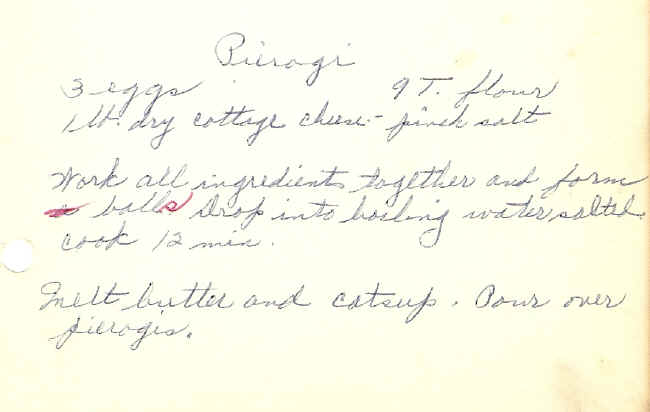 Pierogi
3 eggs 9 T. flour
1 lb. dry cottage cheese - pinch salt
Work all ingredients together and form
balls Drop into boiling water salted.
cook 12 min.
Melt butter and catsup. Pour over
pierogis.